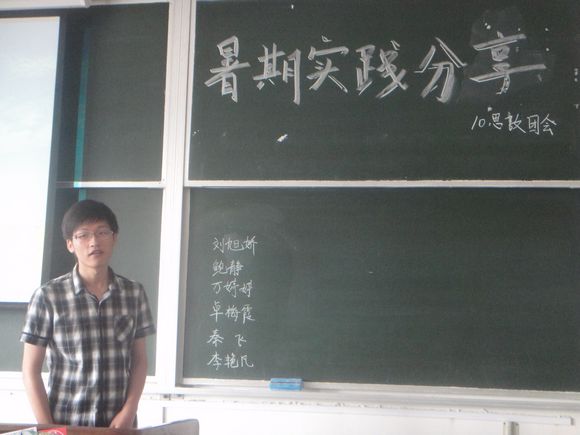 暑期实践分享
10思教团会
刘旭娇
鲍静
万婷婷
卓梅霞
秦飞
李艳民